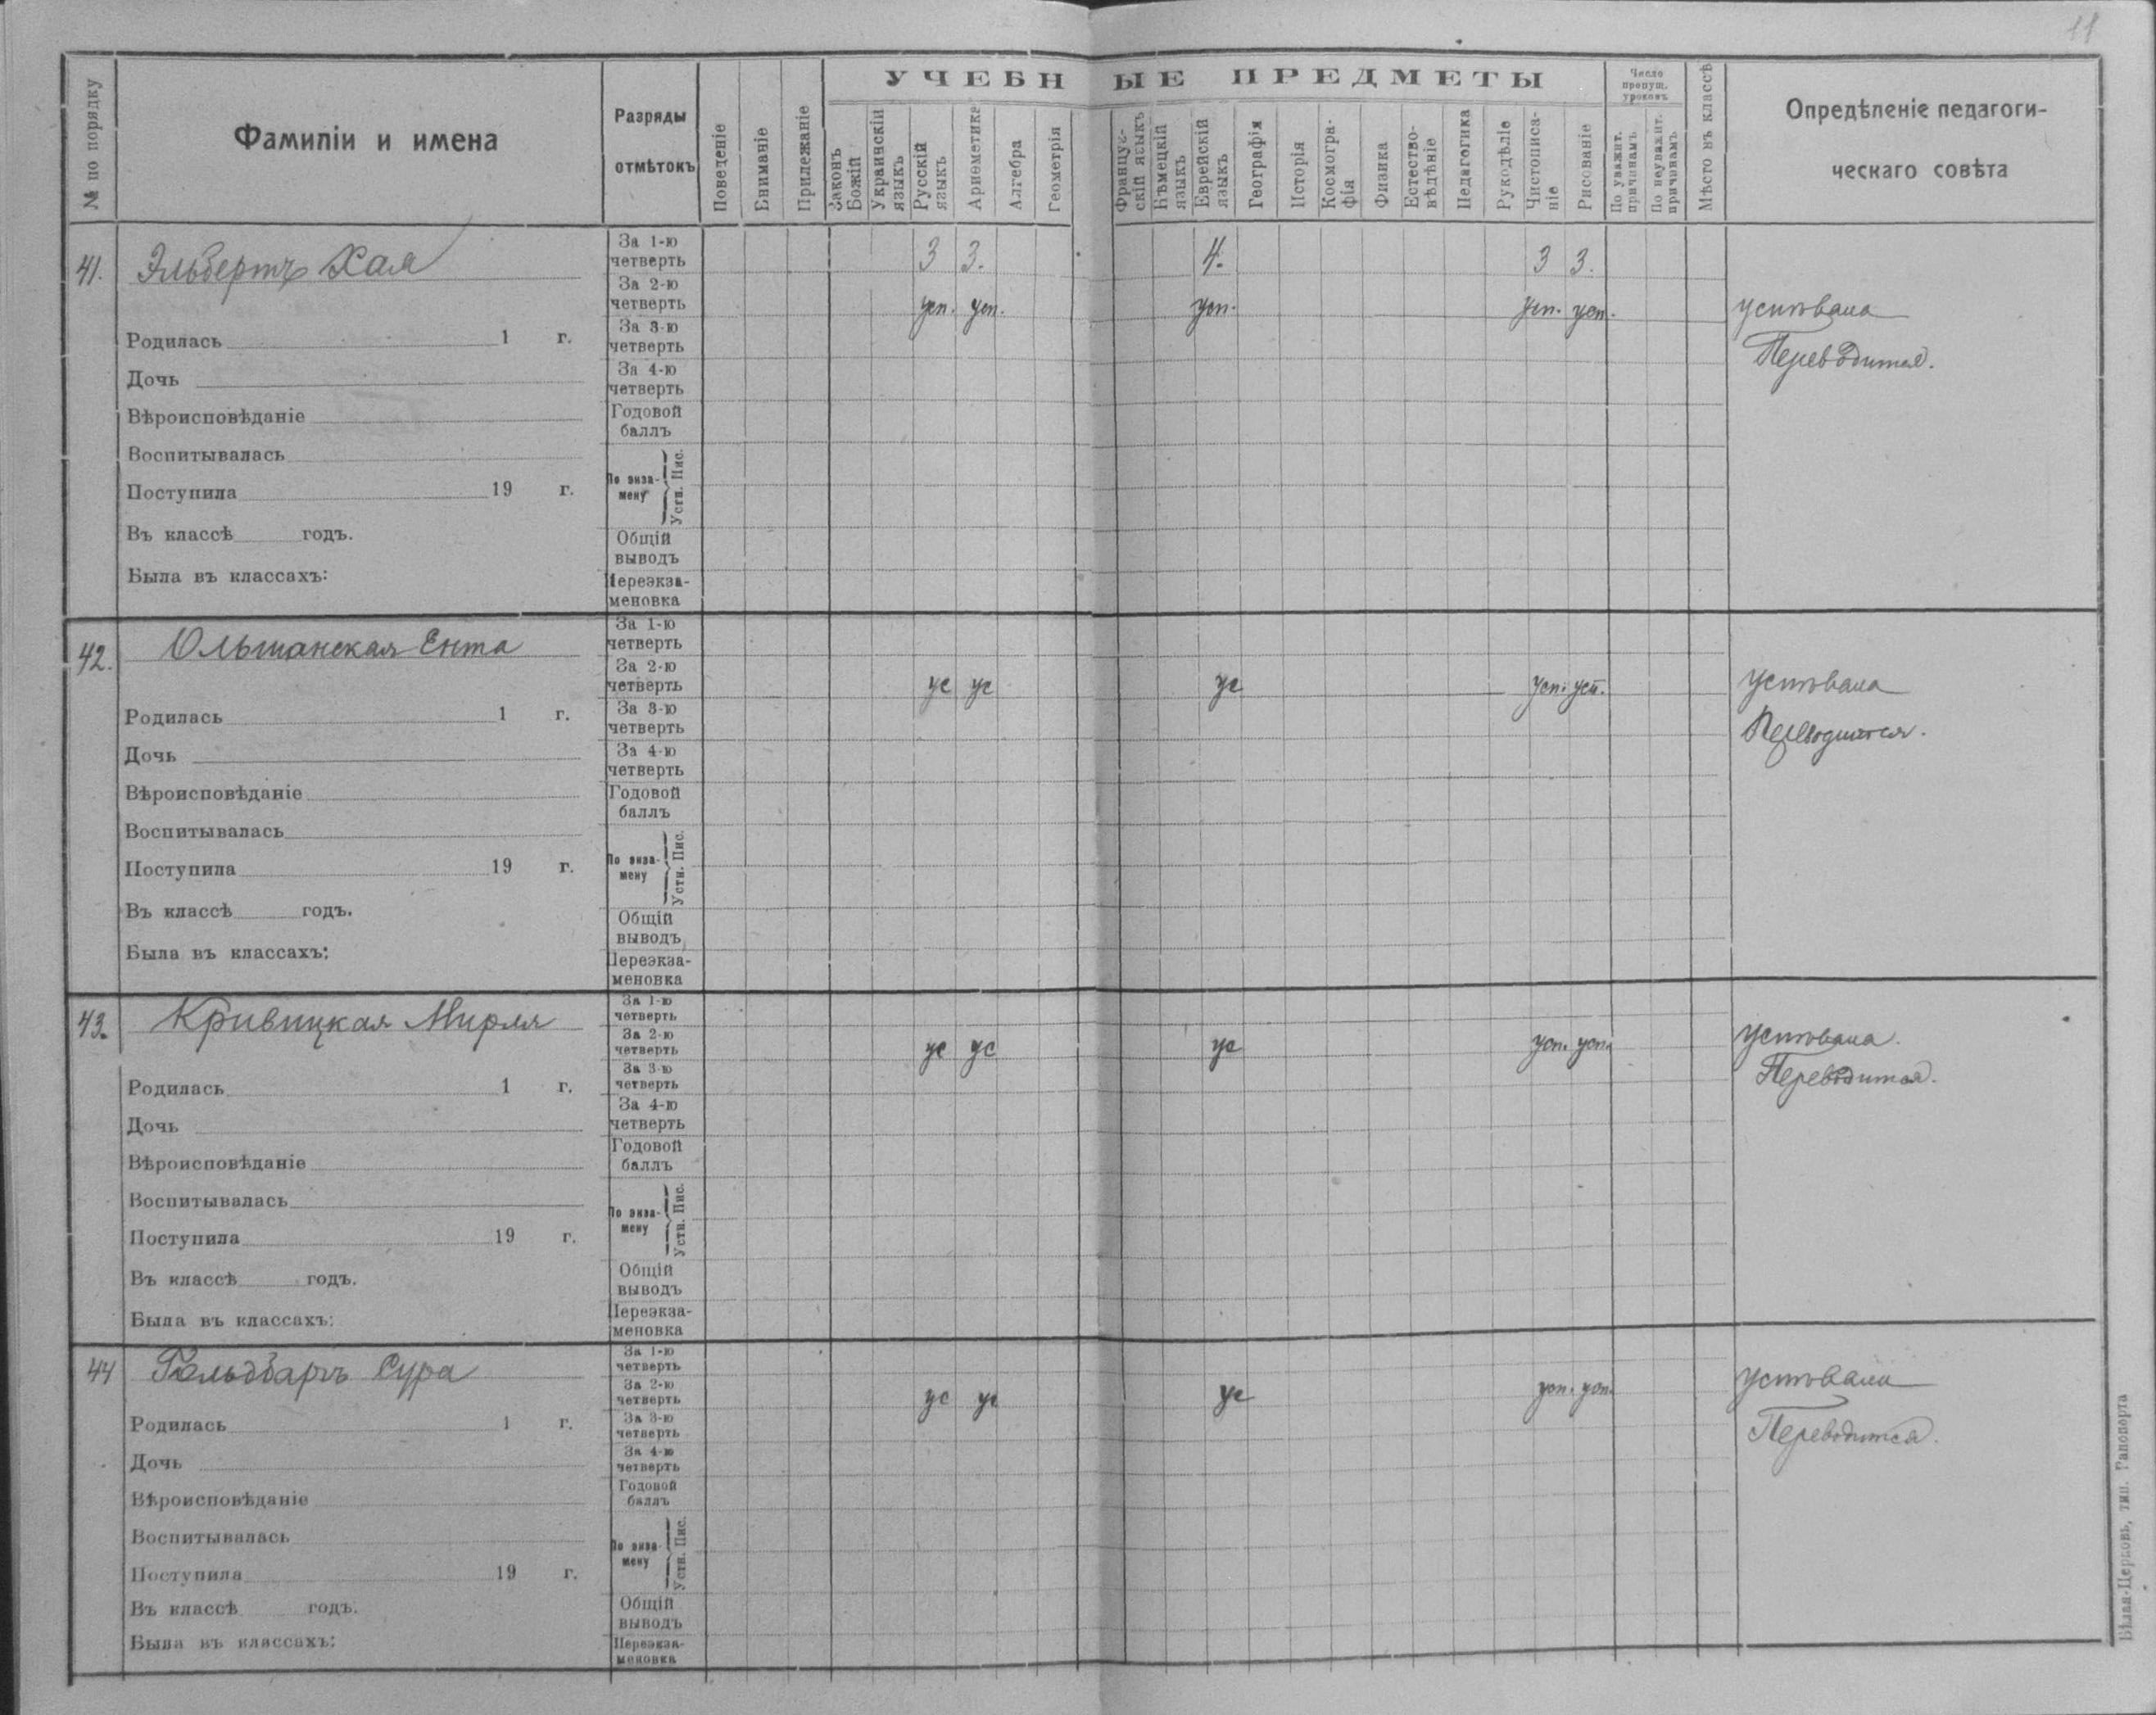 11
УЧЕБНЫЕ ПРЕДМЕТЫ
№ по порядку
Фамиліи и имена
Разряды
отмѣтокъ
Поведеніе
Вниманіе
Прилежаніе
Законъ
Божій
Украинскій
языкъ
Русскій
языкъ
Ариѳметика
Алгебра
Геометрія
Француз-
скій языкъ
Нѣмецкій
языкъ
Еврейскій
языкъ
Географія
Исторія
Космогра-
фія
Физика
Естество-
вѣдѣніе
Педагогика
Рукодѣліе
Чистописа-
ніе
Рисованіе
Число
пропущ.
уроковъ
По уважит.
причинамъ
По неуважит.
причинамъ
Мѣсто въ классѣ
Опредѣленіе педагоги-
ческаго совѣта
41. Эльбертъ Хая
Родилась 1 г.
Дочь
Вѣроисповѣданіе
Воспитывалась
Поступила 19 г.
Въ классѣ годъ.
Была въ классахъ:
За 1-ю
четверть 3 3. 4. 3 3.
За 2-ю
четверть усп. усп. усп. усп. усп.
За 3-ю
четверть
За 4-ю
четверть
Годовой
баллъ
По экза-
мену
Устн. Пис.
Общій
выводъ
Переэкза-
меновка
успѣвала
Переводится.
42. Ольшанская Ента
Родилась 1 г.
Дочь
Вѣроисповѣданіе
Воспитывалась
Поступила 19 г.
Въ классѣ годъ.
Была въ классахъ:
За 1-ю
четверть
За 2-ю
четверть ус ус ус усп. усп.
За 3-ю
четверть
За 4-ю
четверть
Годовой
баллъ
По экза-
мену
Устн. Пис.
Общій
выводъ
Переэкза-
меновка
успѣвала
Переводится.
43. Кривицкая Мирля
Родилась 1 г.
Дочь
Вѣроисповѣданіе
Воспитывалась
Поступила 19 г.
Въ классѣ годъ.
Была въ классахъ:
За 1-ю
четверть
За 2-ю
четверть ус ус ус усп. усп.
За 3-ю
четверть
За 4-ю
четверть
Годовой
баллъ
По экза-
мену
Устн. Пис.
Общій
выводъ
Переэкза-
меновка
успѣвала.
Переводится.
44 Гольдбартъ Сура
Родилась 1 г.
Дочь
Вѣроисповѣданіе
Воспитывалась
Поступила 19 г.
Въ классѣ годъ.
Была въ классахъ:
За 1-ю
четверть
За 2-ю
четверть ус ус ус усп. усп.
За 3-ю
четверть
За 4-ю
четверть
Годовой
баллъ
По экза-
мену
Устн. Пис.
Общій
выводъ
Переэкза-
меновка
успѣвала
Переводится.
Бѣлая-Церковь, тип. Рапопорта